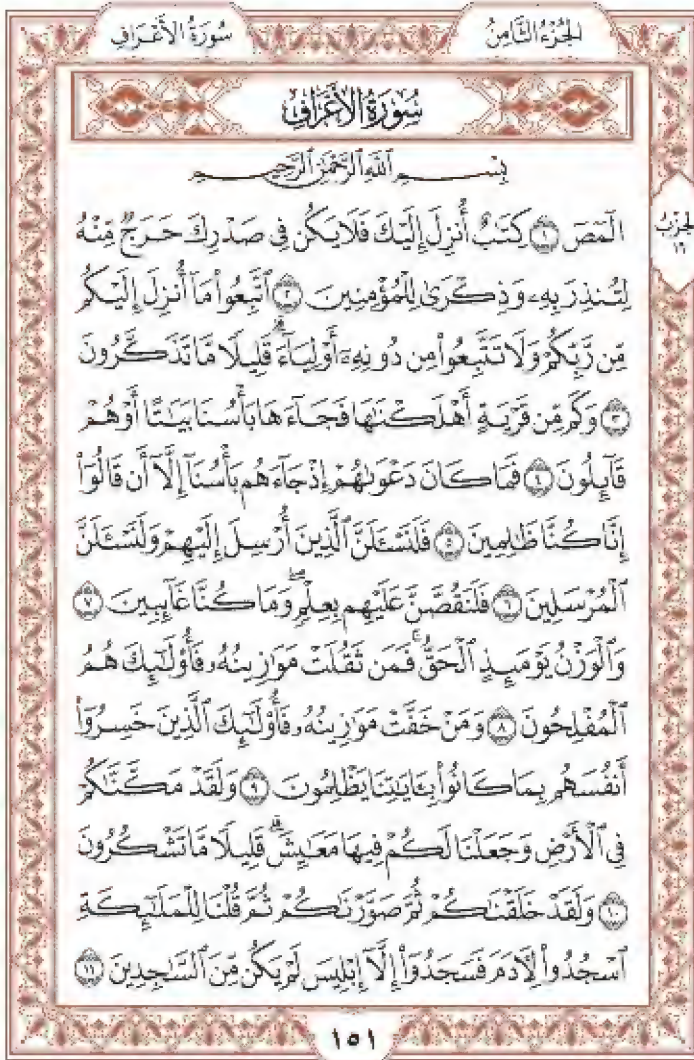 سُورَةُ الأَعْرَافِ
الجُزْءُ الثَّامِنُ
سُورَةُ الأَعْرَافِ
بِسْمِ ٱللَّهِ ٱلرَّحْمَٰنِ ٱلرَّحِيمِ
الٓمٓصٓ ١ كِتَٰبٌ أُنزِلَ إِلَيْكَ فَلَا يَكُن فِى صَدْرِكَ حَرَجٌ مِّنْهُ
لِتُنذِرَ بِهِۦ وَذِكْرَىٰ لِلْمُؤْمِنِينَ ٢ ٱتَّبِعُوا۟ مَآ أُنزِلَ إِلَيْكُم
مِّن رَّبِّكُمْ وَلَا تَتَّبِعُوا۟ مِن دُونِهِۦٓ أَوْلِيَآءَ ۗ قَلِيلًا مَّا تَذَكَّرُونَ
٣ وَكَم مِّن قَرْيَةٍ أَهْلَكْنَٰهَا فَجَآءَهَا بَأْسُنَا بَيَٰتًا أَوْ هُمْ
قَآئِلُونَ ٤ فَمَا كَانَ دَعْوَىٰهُمْ إِذْ جَآءَهُم بَأْسُنَآ إِلَّآ أَن قَالُوٓا۟
إِنَّا كُنَّا ظَٰلِمِينَ ٥ فَلَنَسْـَٔلَنَّ ٱلَّذِينَ أُرْسِلَ إِلَيْهِمْ وَلَنَسْـَٔلَنَّ
ٱلْمُرْسَلِينَ ٦ فَلَنَقُصَّنَّ عَلَيْهِم بِعِلْمٍ ۖ وَمَا كُنَّا غَآئِبِينَ ٧
وَٱلْوَزْنُ يَوْمَئِذٍ ٱلْحَقُّ ۚ فَمَن ثَقُلَتْ مَوَٰزِينُهُۥ فَأُو۟لَٰٓئِكَ هُمُ
ٱلْمُفْلِحُونَ ٨ وَمَنْ خَفَّتْ مَوَٰزِينُهُۥ فَأُو۟لَٰٓئِكَ ٱلَّذِينَ خَسِرُوٓا۟
أَنفُسَهُم بِمَا كَانُوا۟ بِـَٔايَٰتِنَا يَظْلِمُونَ ٩ وَلَقَدْ مَكَّنَّٰكُمْ
فِى ٱلْأَرْضِ وَجَعَلْنَا لَكُمْ فِيهَا مَعَٰيِشَ ۗ قَلِيلًا مَّا تَشْكُرُونَ
١٠ وَلَقَدْ خَلَقْنَٰكُمْ ثُمَّ صَوَّرْنَٰكُمْ ثُمَّ قُلْنَا لِلْمَلَٰٓئِكَةِ
ٱسْجُدُوا۟ لِءَادَمَ فَسَجَدُوٓا۟ إِلَّآ إِبْلِيسَ لَمْ يَكُن مِّنَ ٱلسَّٰجِدِينَ ١١
الحِزْبُ
١٦
١٥١